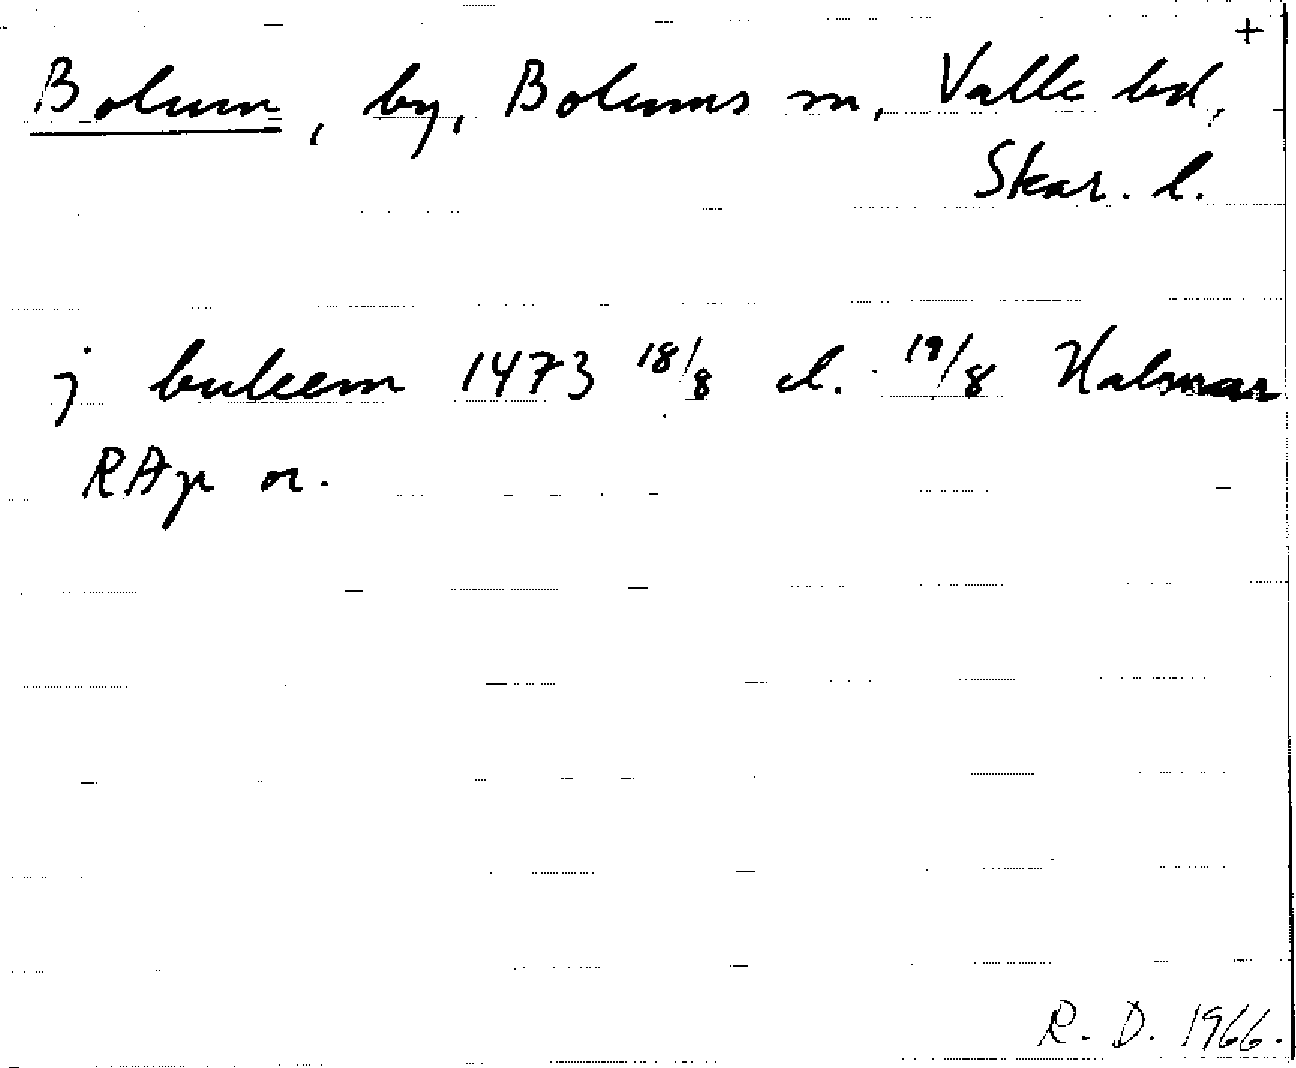 +
Bolum, by, Bolums sn, Valle hd,
Skar. l.
j buleem 1473 18/8 el. 19/8 Kalmar
RAp or.
R. D. 1966.